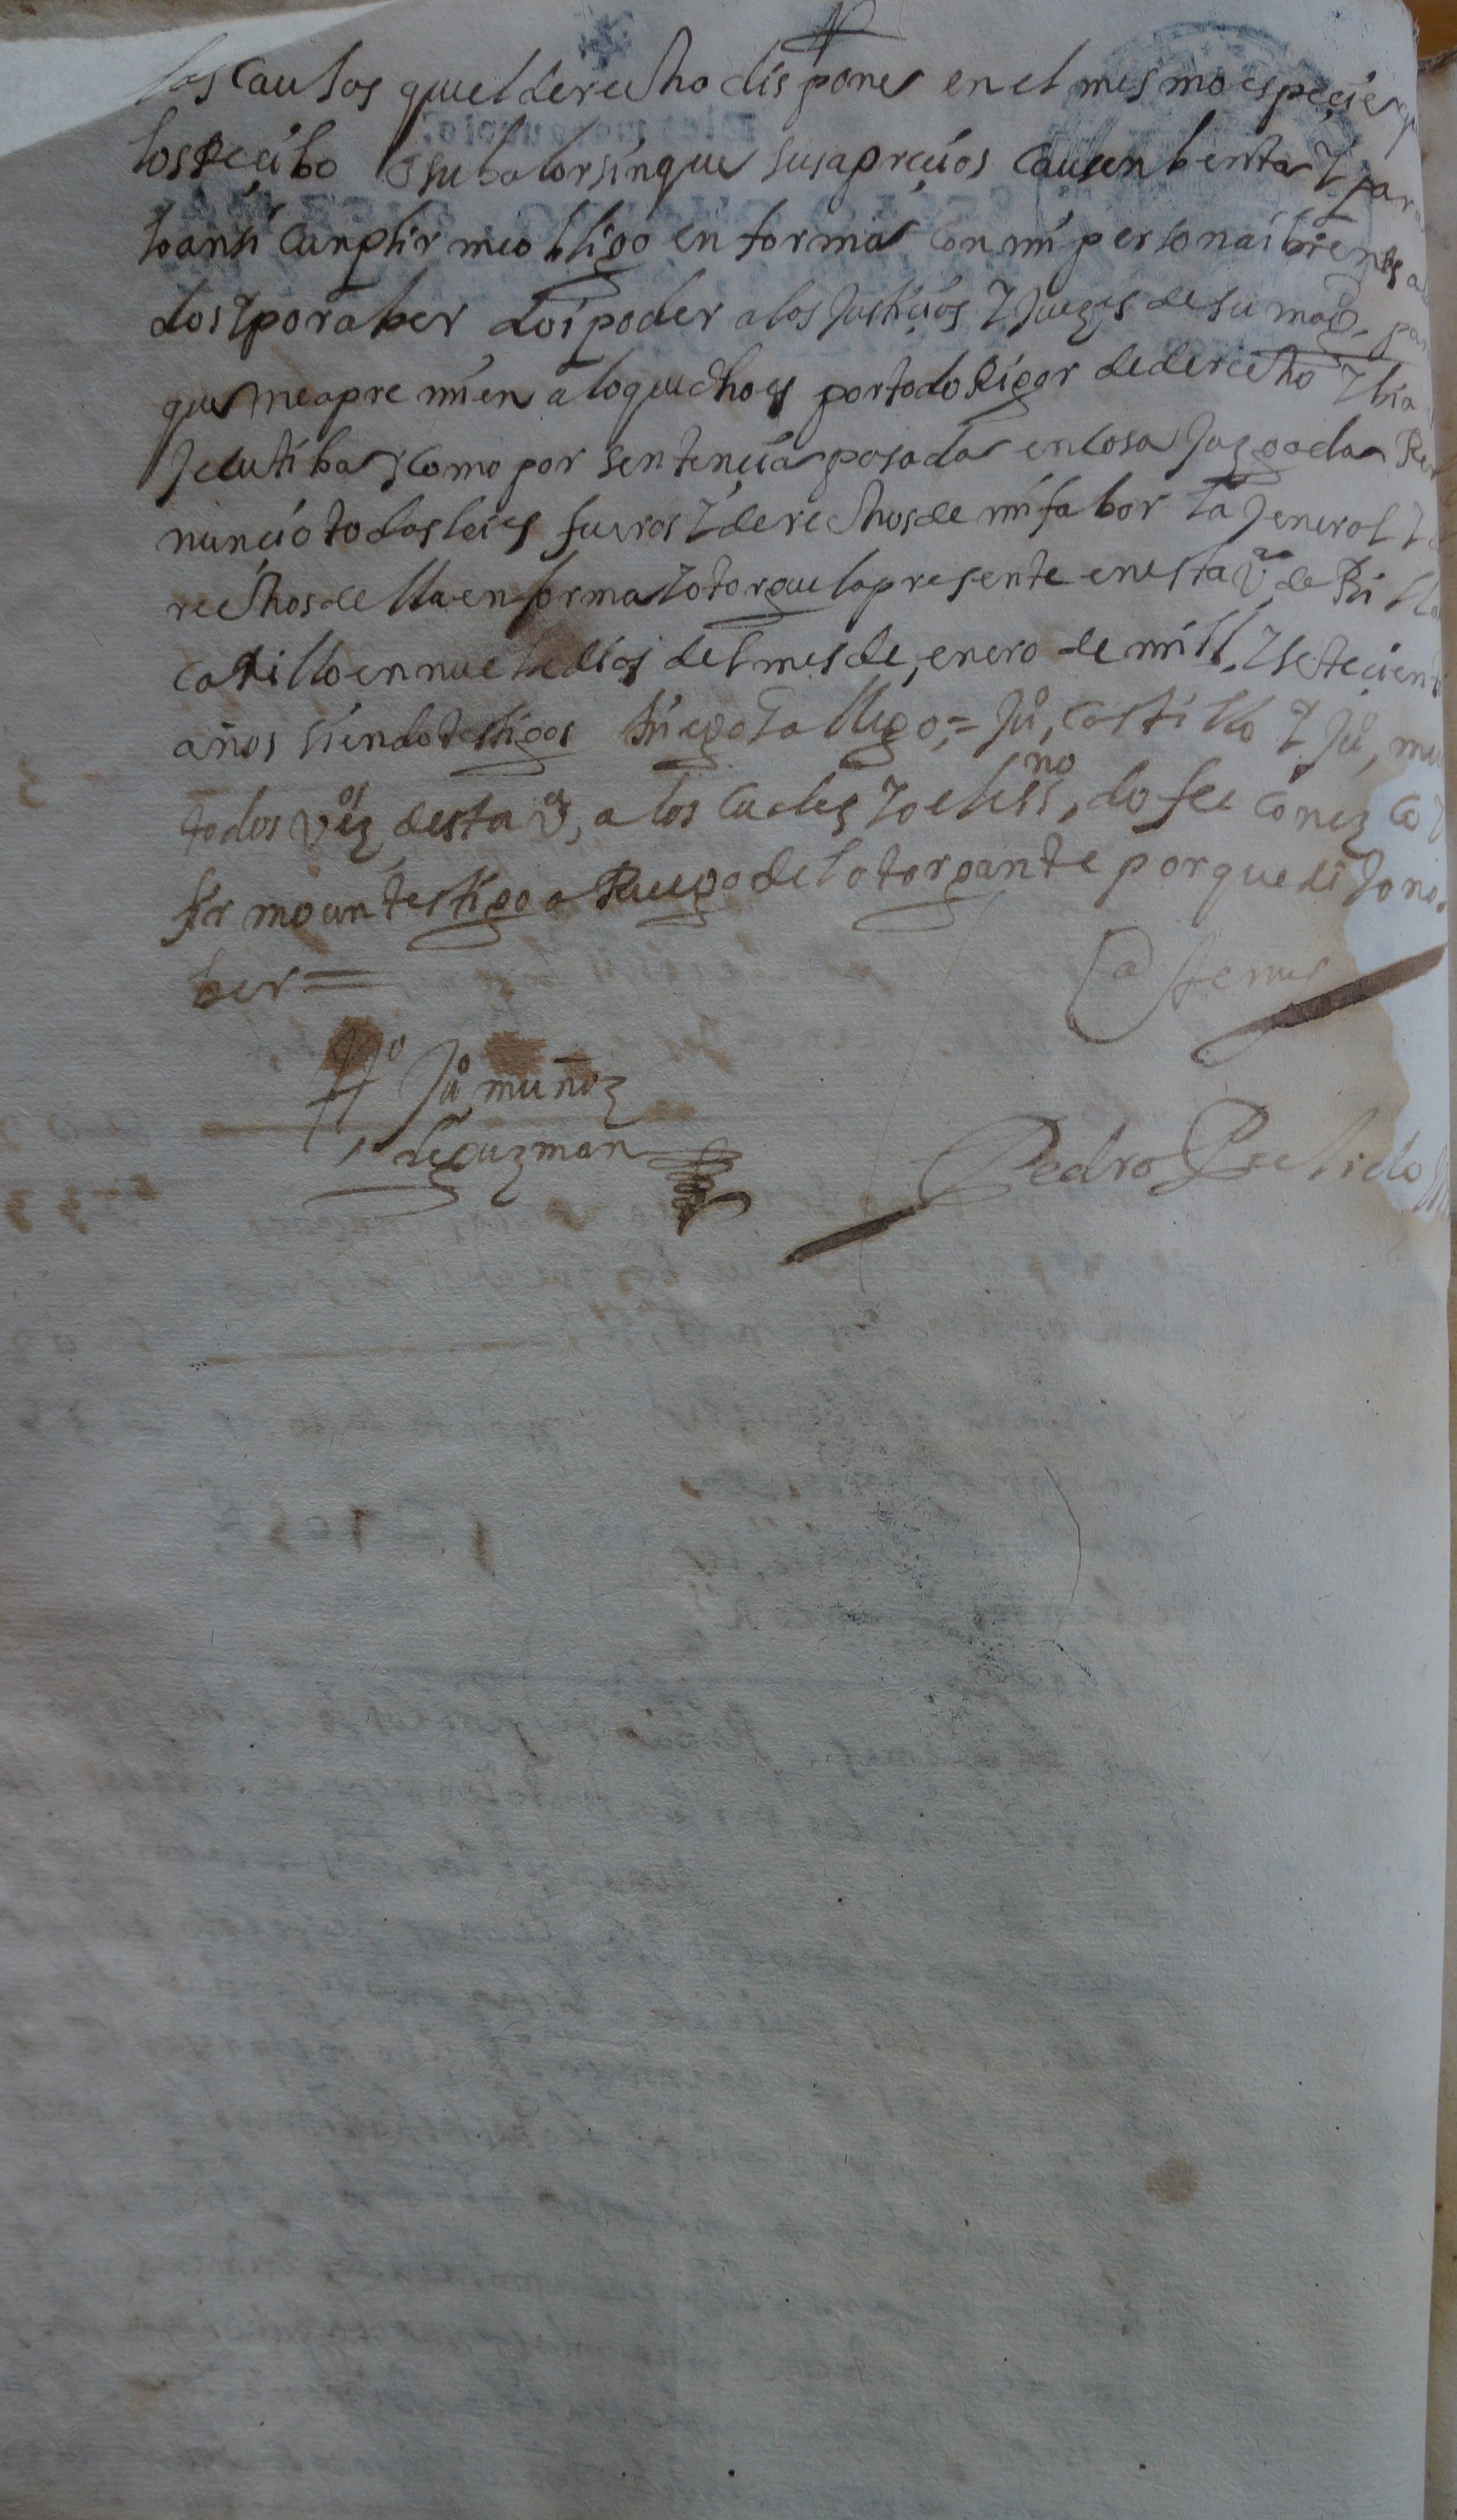 los Causos quel derecho dispone en el mesmo especie q
los Recibo o su balor sin que sus aprecios causen benta Y para
lo ansi cunplir me obligo en forma con mi persona i bienes a
dos Y por aber doi poder a los Justicios Y Juezes de su magd, par
que me apremien a lo que dho es por todo Rigor de derecho Y bia
Jecutiba Y como por sentencia pasada en cosa Juzgada Re
nuncio todas leies fueros Y derechos de mi fabor la Jeneral Y
rechos de lla en forma Y otorgue la presente en esta va de Billa
castillo en nuebe dias del mes de enero de mill, Y setecient
años siendo testigos Diego Gallego = Juo, castillo Y Juo, mu
todos vezos desta va, a los cuales Yo el essno, do fee conozco Y
firmo un testigo a Ruego del otorgante por que dijo no
ber =
Ante mi
to Juo muñoz
de guzman
Pedro Pulido